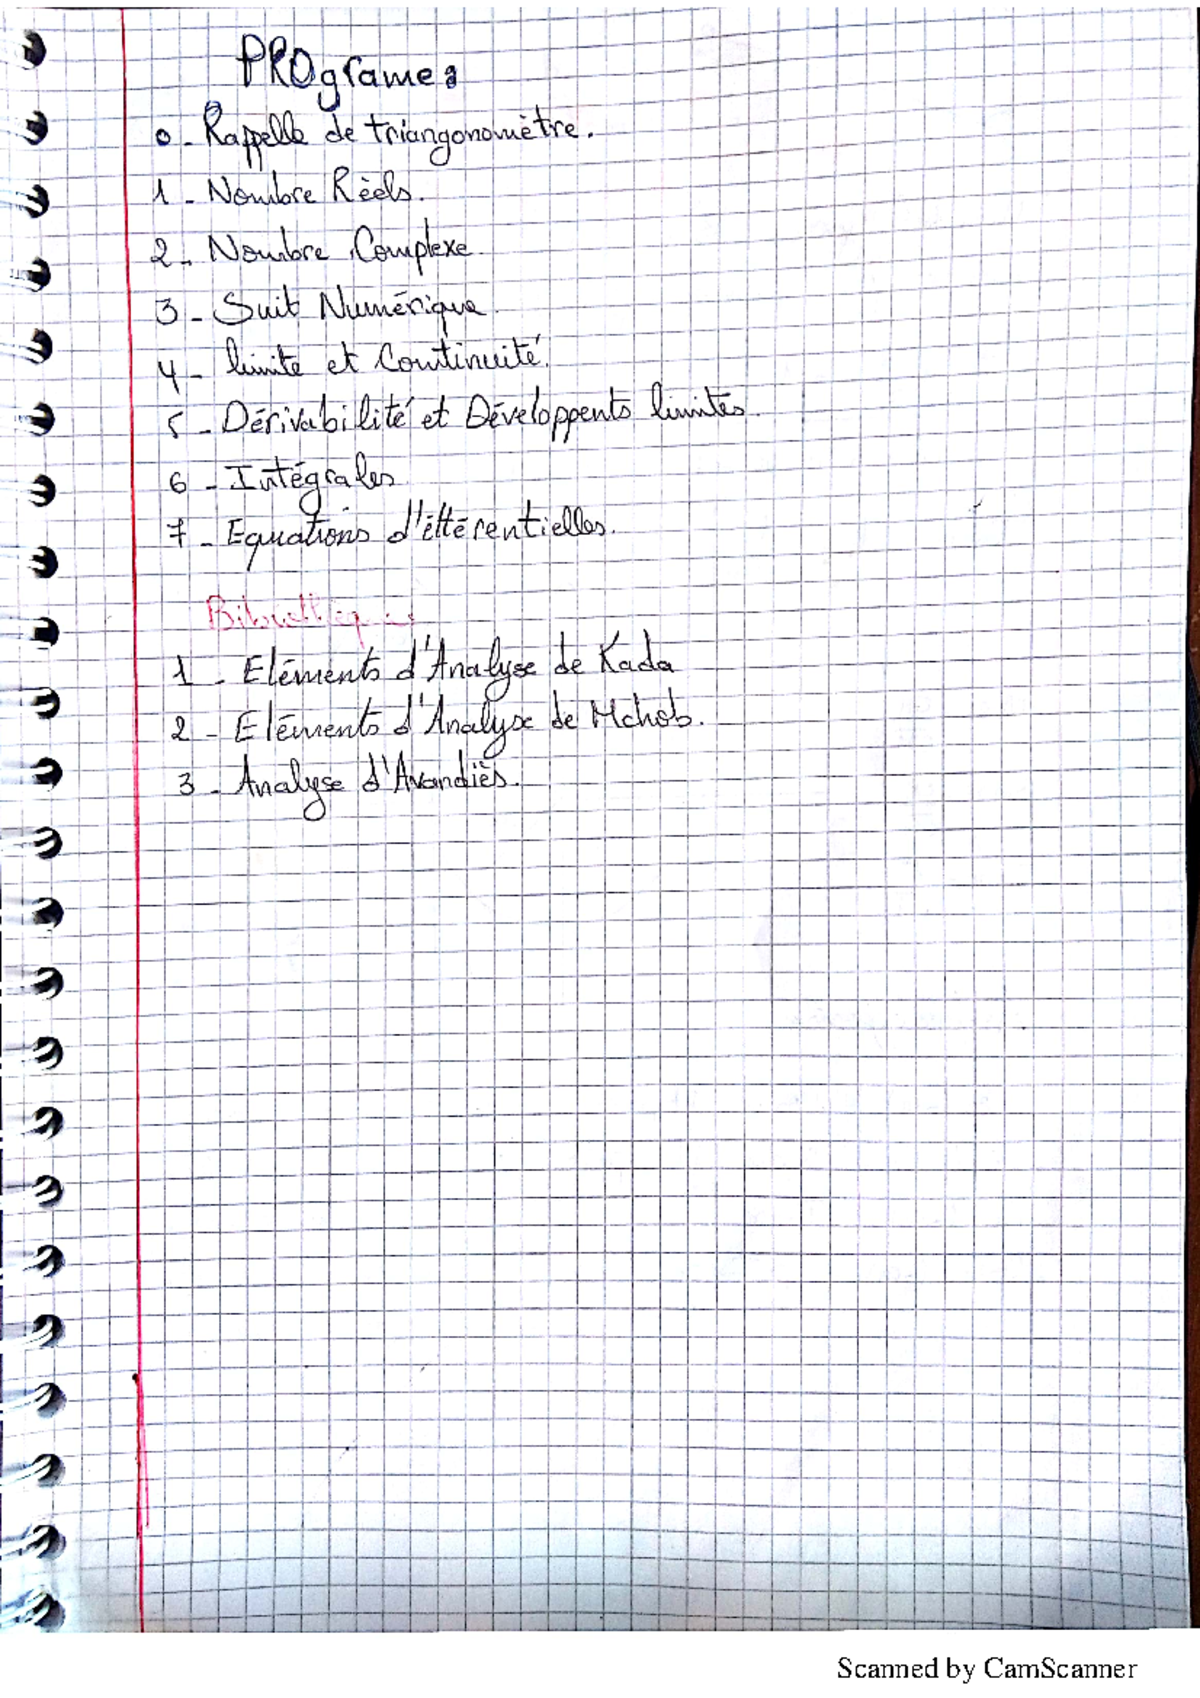 PROgrame:
0 - Rappelle de triangonomètre.
1 - Nombre Réels.
2 - Nombre Complexe.
3 - Suit Numérique.
4 - limite et Continuité.
5 - Dérivabilité et Développents limités.
6 - Intégrales.
7 - Equations d'éttérentielles.
1 - Eléments d'Analyse de Kada
2 - Eléments d'Analyse de Mchob.
3 - Analyse d'Avandiès.
Scanned by CamScanner